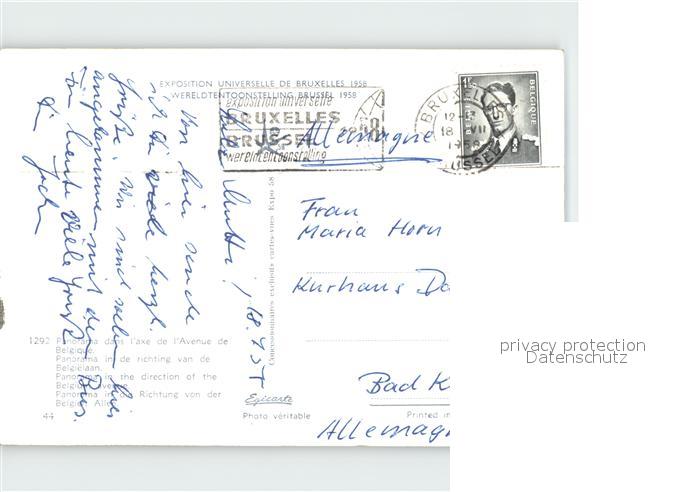 EXPOSITION UNIVERSELLE DE BRUXELLES 1958
WERELDTENTOONSTELLING BRUSSEL 1958
exposition universelle
BRUXELLES
BRUSSEL
wereldtentoonstelling
BRUXELLES
12-
18 VII
1958
BRUSSEL
BELGIQUE
Allemagne
Liebe Mutti! 18.7.58
Von hier sende
ich dir viele herzl.
Grüße. Wir sind soeben hier
angekommen mit dem Bus.
für heute viele Grüße
dein
Frau
Maria Horn
Kurhaus
Bad K
Allemagn
Concessionnaires exclusifs cartes-vues Expo 58
1292 Panorama dans l'axe de l'Avenue de
Belgique.
Panorama in de richting van de
Belgiëlaan.
Panorama in the direction of the
Belgium Avenue.
Panorama in der Richtung von der
Belgien Allee.
44
Egicarte
Photo véritable
Printed in
privacy protection
Datenschutz